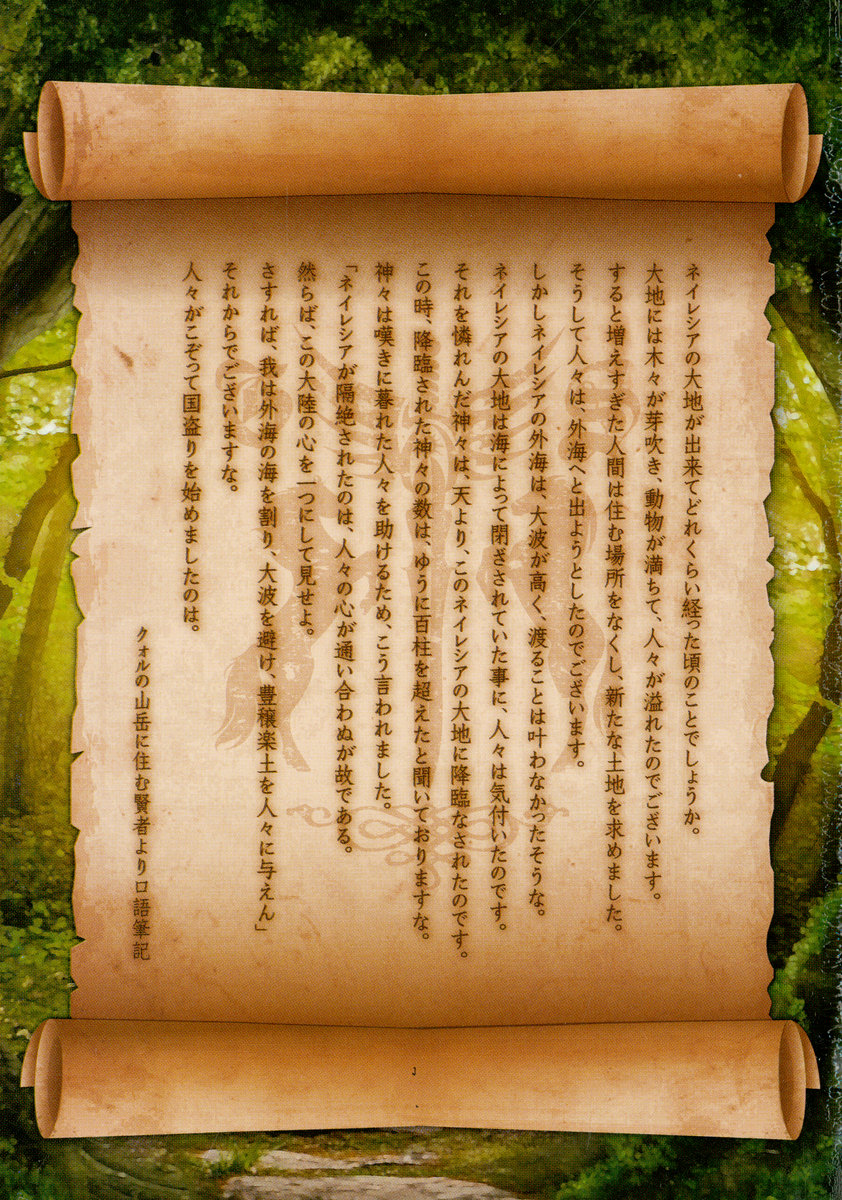 ネイレシアの大地が出来てどれくらい経った頃のことでしょうか。
大地には木々が芽吹き、動物が満ちて、人々が溢れたのでございます。
すると増えすぎた人間は住む場所をなくし、新たな土地を求めました。
そうして人々は、外海へと出ようとしたのでございます。
しかしネイレシアの外海は、大波が高く、渡ることは叶わなかったそうな。
ネイレシアの大地は海によって閉ざされていた事に、人々は気付いたのです。
それを憐れんだ神々は、天より、このネイレシアの大地に降臨なされたのです。
この時、降臨された神々の数は、ゆうに百柱を超えたと聞いておりますな。
神々は嘆きに暮れた人々を助けるため、こう言われました。
「ネイレシアが隔絶されたのは、人々の心が通い合わぬが故である。
然らば、この大陸の心を一つにして見せよ。
さすれば、我は外海の海を割り、大波を避け、豊穣楽土を人々に与えん」
それからでございますな。
人々がこぞって国盗りを始めましたのは。
クォルの山岳に住む賢者より口語筆記